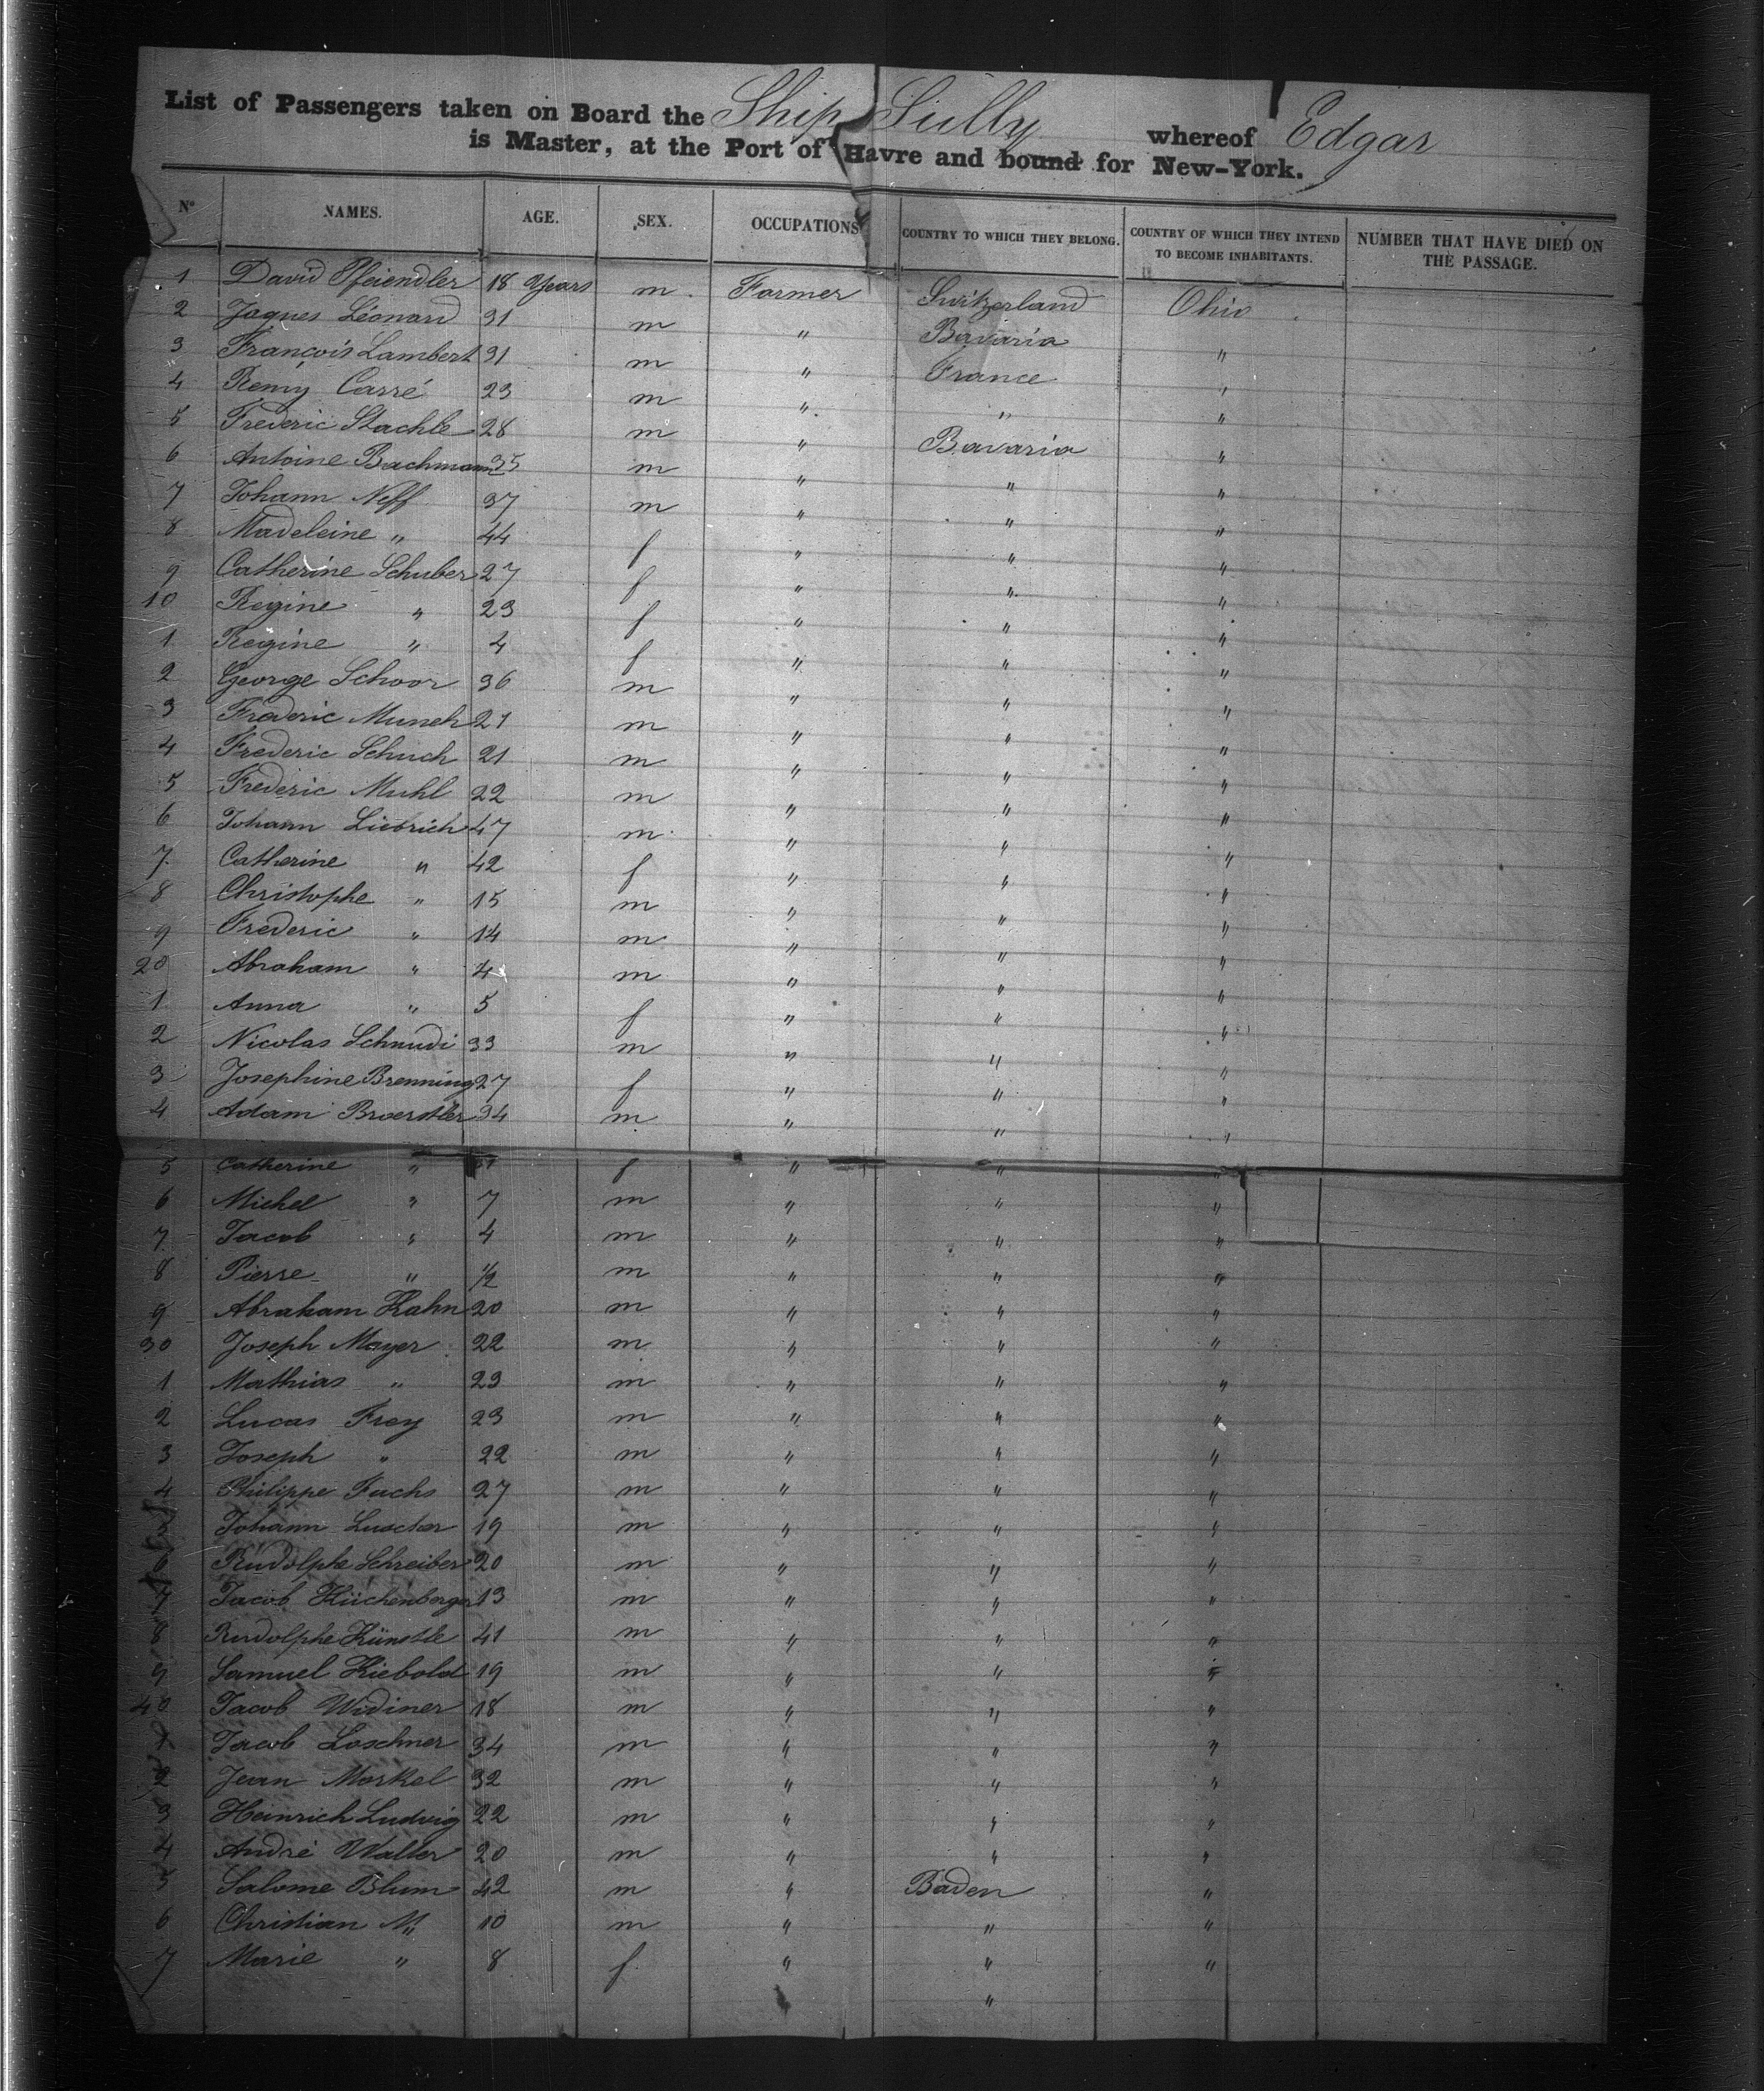 List of Passengers taken on Board the Ship Sully whereof Edgar
is Master, at the Port of Havre and bound for New-York.
N° NAMES. AGE. SEX. OCCUPATIONS COUNTRY TO WHICH THEY BELONG. COUNTRY OF WHICH THEY INTEND TO BECOME INHABITANTS. NUMBER THAT HAVE DIED ON THE PASSAGE.
1 David Pfeiendler 18 Years m Farmer Switzerland Ohio
2 Jaques Léonard 31 m " Bavaria "
3 François Lambert 31 m " France "
4 Remy Carré 23 m " " "
5 Frederic Stachle 28 m " Bavaria "
6 Antoine Bachmann 35 m " " "
7 Johann Neff 37 m " " "
8 Madeleine " 44 f " " "
9 Catherine Schuber 27 f " " "
10 Regine " 23 f " " "
1 Regine " 4 f " " "
2 George Schoor 36 m " " "
3 Frederic Munch 21 m " " "
4 Frederic Schuch 21 m " " "
5 Frederic Muhl 22 m " " "
6 Johann Liebrich 47 m " " "
7 Catherine " 42 f " " "
8 Christophe " 15 m " " "
9 Frederic " 14 m " " "
20 Abraham " 4 m " " "
1 Anna " 5 f " " "
2 Nicolas Schmudi 33 m " " "
3 Josephine Brenning 27 f " " "
4 Adam Broerstler 34 m " " "
5 Catherine " f " " "
6 Michel " 7 m " " "
7 Jacob " 4 m " " "
8 Pierre " 1/2 m " " "
9 Abraham Kahn 20 m " " "
30 Joseph Mayer 22 m " " "
1 Mathias " 23 m " " "
2 Lucas Frey 23 m " " "
3 Joseph " 22 m " " "
4 Philippe Fuchs 27 m " " "
5 Johann Luscher 19 m " " "
6 Rudolphe Schreiber 20 m " " "
7 Jacob Hüchenberger 13 m " " "
8 Rudolphe Künstle 41 m " " "
9 Samuel Kiebold 19 m " " "
40 Jacob Widiner 18 m " " "
1 Jacob Loschner 34 m " " "
2 Jean Morkel 32 m " " "
3 Heinrich Ludvig 22 m " " "
4 André Walter 20 m " " "
5 Salome Blum 42 m " Baden "
6 Christian M " 10 m " " "
7 Marie " 8 f " " "
"